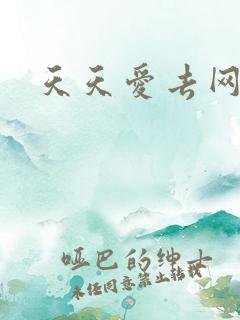 天天愛去网
哑巴的绅士
未经同意禁止转载